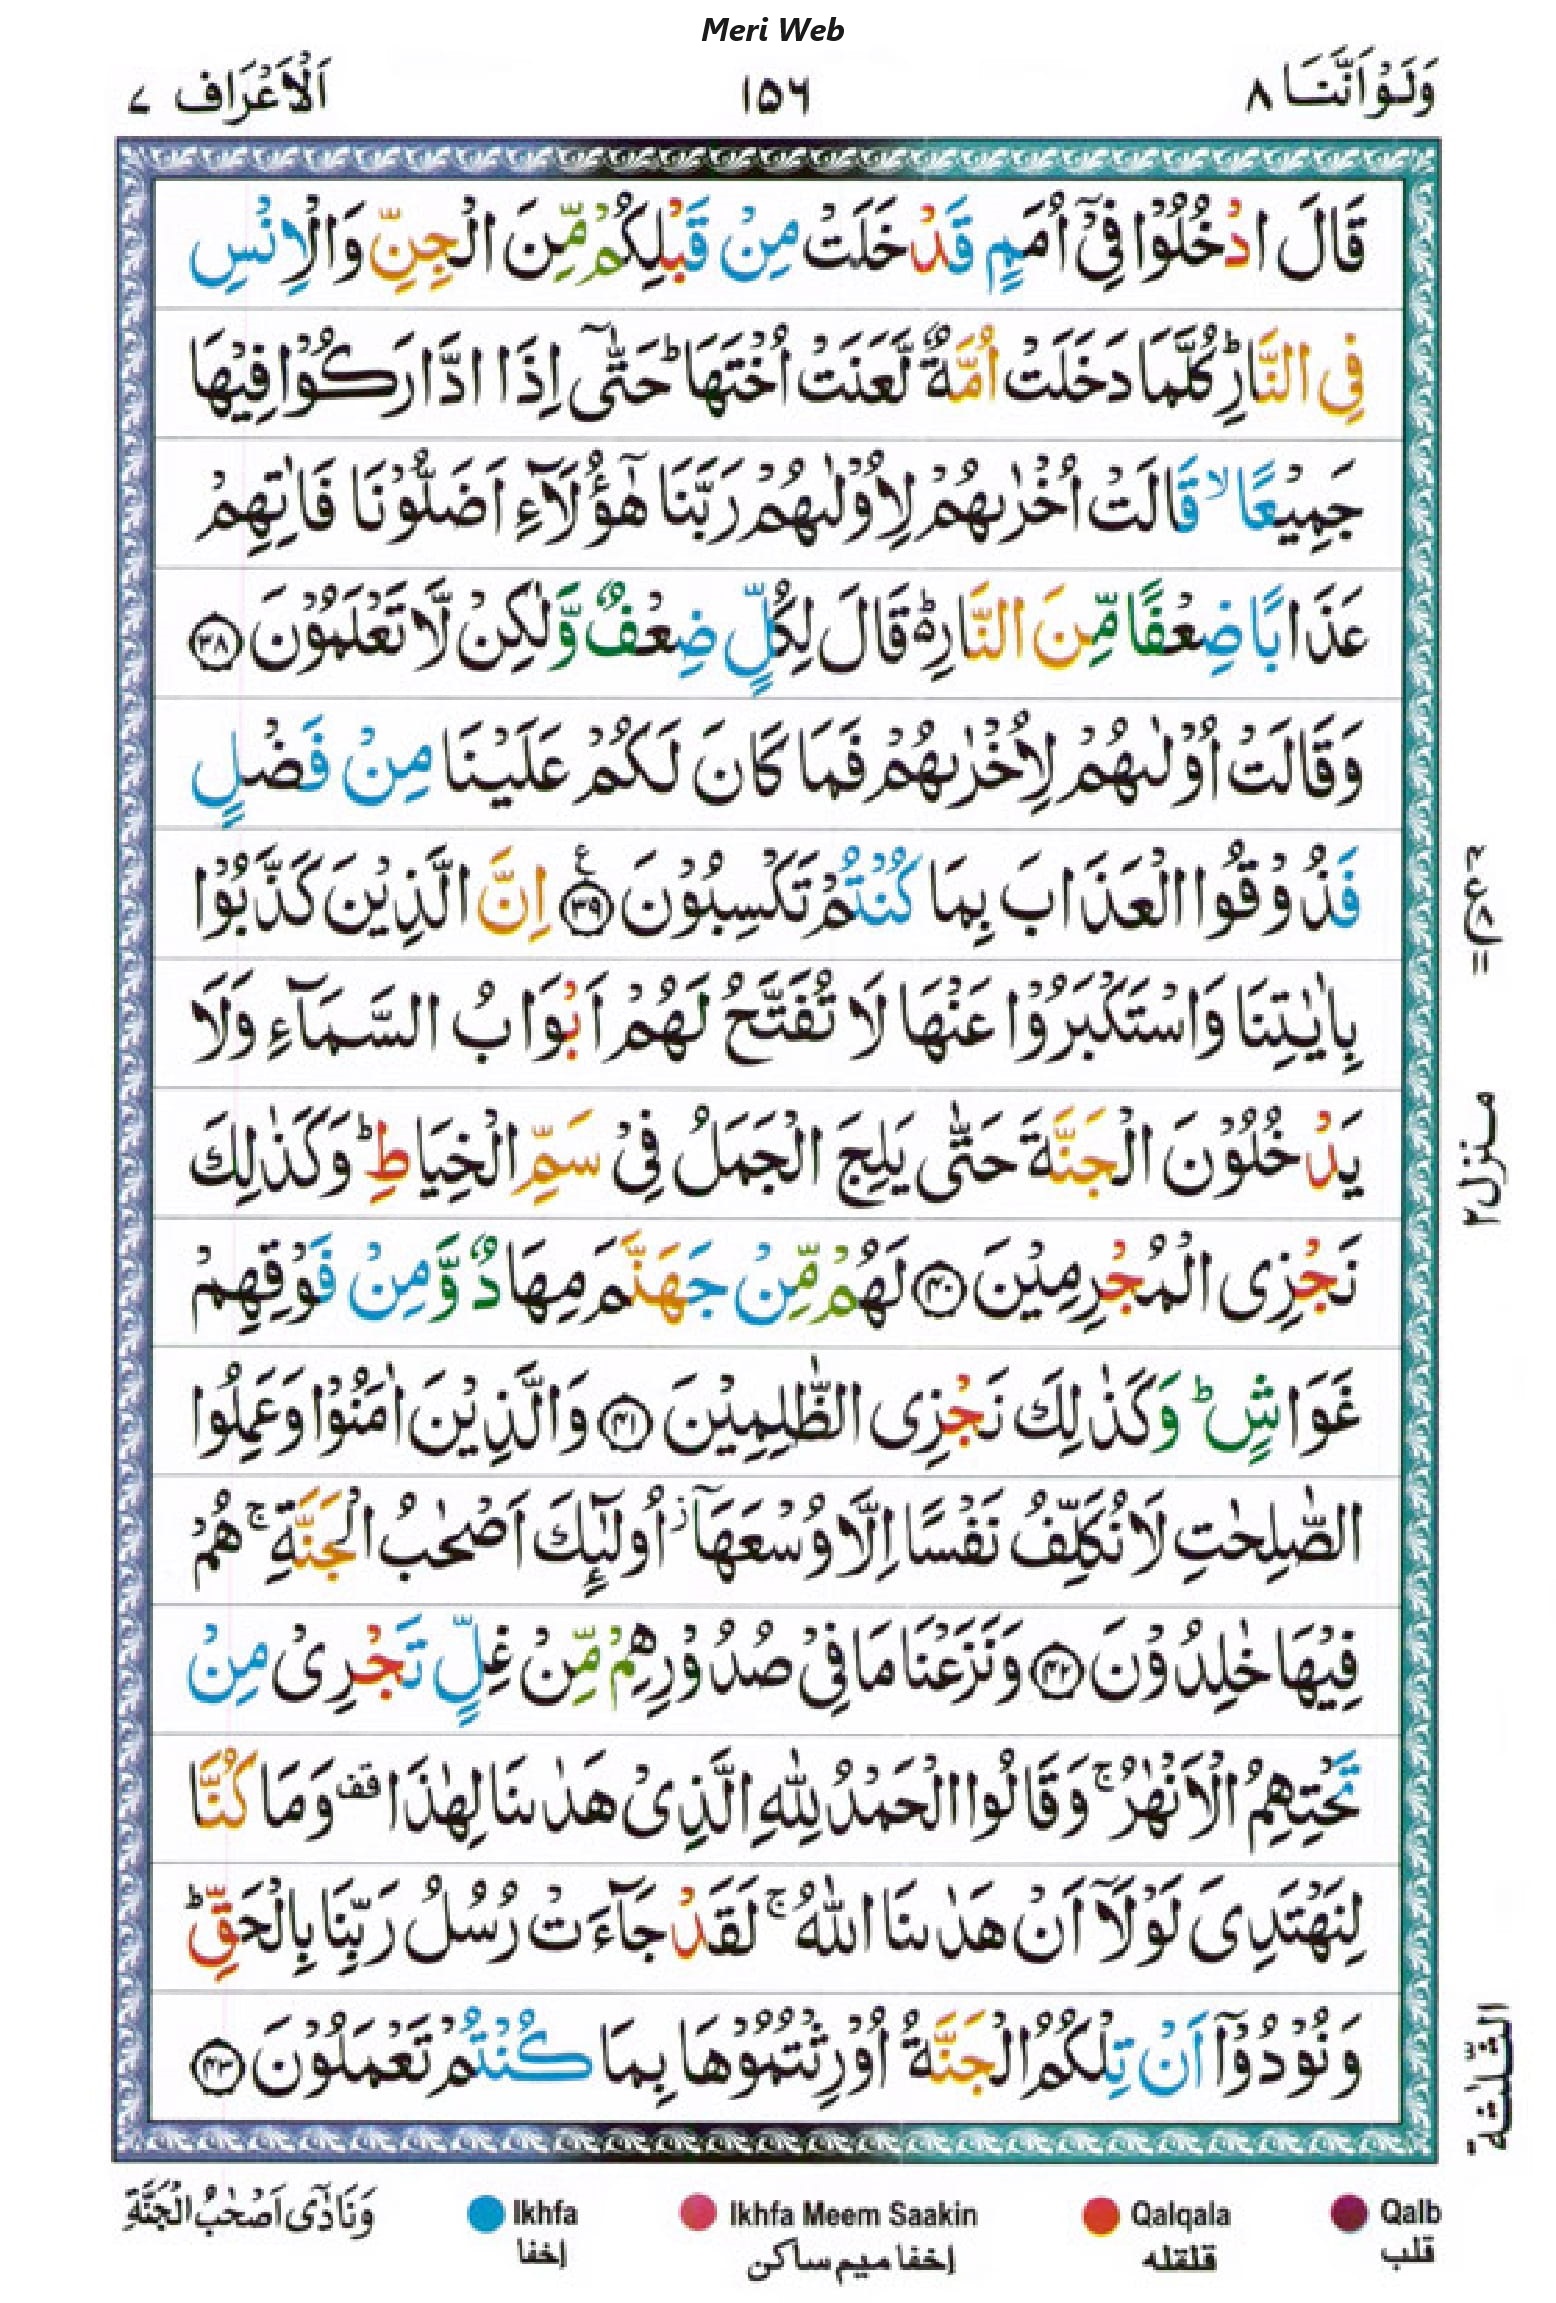 Meri Web
وَلَوْ اَنَّنَا ٨ ١٥٦ اَلْاَعْرَاف ٧
قَالَ ادْخُلُوْا فِیْۤ اُمَمٍ قَدْ خَلَتْ مِنْ قَبْلِكُمْ مِّنَ الْجِنِّ وَالْاِنْسِ
فِی النَّارِ ؕ كُلَّمَا دَخَلَتْ اُمَّةٌ لَّعَنَتْ اُخْتَهَا ؕ حَتّٰۤی اِذَا ادَّارَكُوْا فِیْهَا
جَمِیْعًا ۙ قَالَتْ اُخْرٰىهُمْ لِاُوْلٰىهُمْ رَبَّنَا هٰۤؤُلَآءِ اَضَلُّوْنَا فَاٰتِهِمْ
عَذَابًا ضِعْفًا مِّنَ النَّارِ ؕ۬ قَالَ لِكُلٍّ ضِعْفٌ وَّلٰكِنْ لَّا تَعْلَمُوْنَ ﴿٣٨﴾
وَقَالَتْ اُوْلٰىهُمْ لِاُخْرٰىهُمْ فَمَا كَانَ لَكُمْ عَلَیْنَا مِنْ فَضْلٍ
فَذُوْقُوا الْعَذَابَ بِمَا كُنْتُمْ تَكْسِبُوْنَ ﴿٣٩﴾ ع اِنَّ الَّذِیْنَ كَذَّبُوْا
بِاٰیٰتِنَا وَاسْتَكْبَرُوْا عَنْهَا لَا تُفَتَّحُ لَهُمْ اَبْوَابُ السَّمَآءِ وَلَا
یَدْخُلُوْنَ الْجَنَّةَ حَتّٰی یَلِجَ الْجَمَلُ فِیْ سَمِّ الْخِیَاطِ ؕ وَكَذٰلِكَ
نَجْزِی الْمُجْرِمِیْنَ ﴿٤٠﴾ لَهُمْ مِّنْ جَهَنَّمَ مِهَادٌ وَّمِنْ فَوْقِهِمْ
غَوَاشٍ ؕ وَكَذٰلِكَ نَجْزِی الظّٰلِمِیْنَ ﴿٤١﴾ وَالَّذِیْنَ اٰمَنُوْا وَعَمِلُوا
الصّٰلِحٰتِ لَا نُكَلِّفُ نَفْسًا اِلَّا وُسْعَهَاۤ ؗ اُولٰٓىِٕكَ اَصْحٰبُ الْجَنَّةِ ۚ هُمْ
فِیْهَا خٰلِدُوْنَ ﴿٤٢﴾ وَنَزَعْنَا مَا فِیْ صُدُوْرِهِمْ مِّنْ غِلٍّ تَجْرِیْ مِنْ
تَحْتِهِمُ الْاَنْهٰرُ ۚ وَقَالُوا الْحَمْدُ لِلّٰهِ الَّذِیْ هَدٰىنَا لِهٰذَا قف وَمَا كُنَّا
لِنَهْتَدِیَ لَوْلَاۤ اَنْ هَدٰىنَا اللّٰهُ ۚ لَقَدْ جَآءَتْ رُسُلُ رَبِّنَا بِالْحَقِّ ؕ
وَنُوْدُوْۤا اَنْ تِلْكُمُ الْجَنَّةُ اُوْرِثْتُمُوْهَا بِمَا كُنْتُمْ تَعْمَلُوْنَ ﴿٤٣﴾
منزل ٢
الثلثة
وَنَادٰۤی اَصْحٰبُ الْجَنَّةِ
Ikhfa Ikhfa Meem Saakin Qalqala Qalb
إخفا إخفا ميم ساكن قلقله قلب